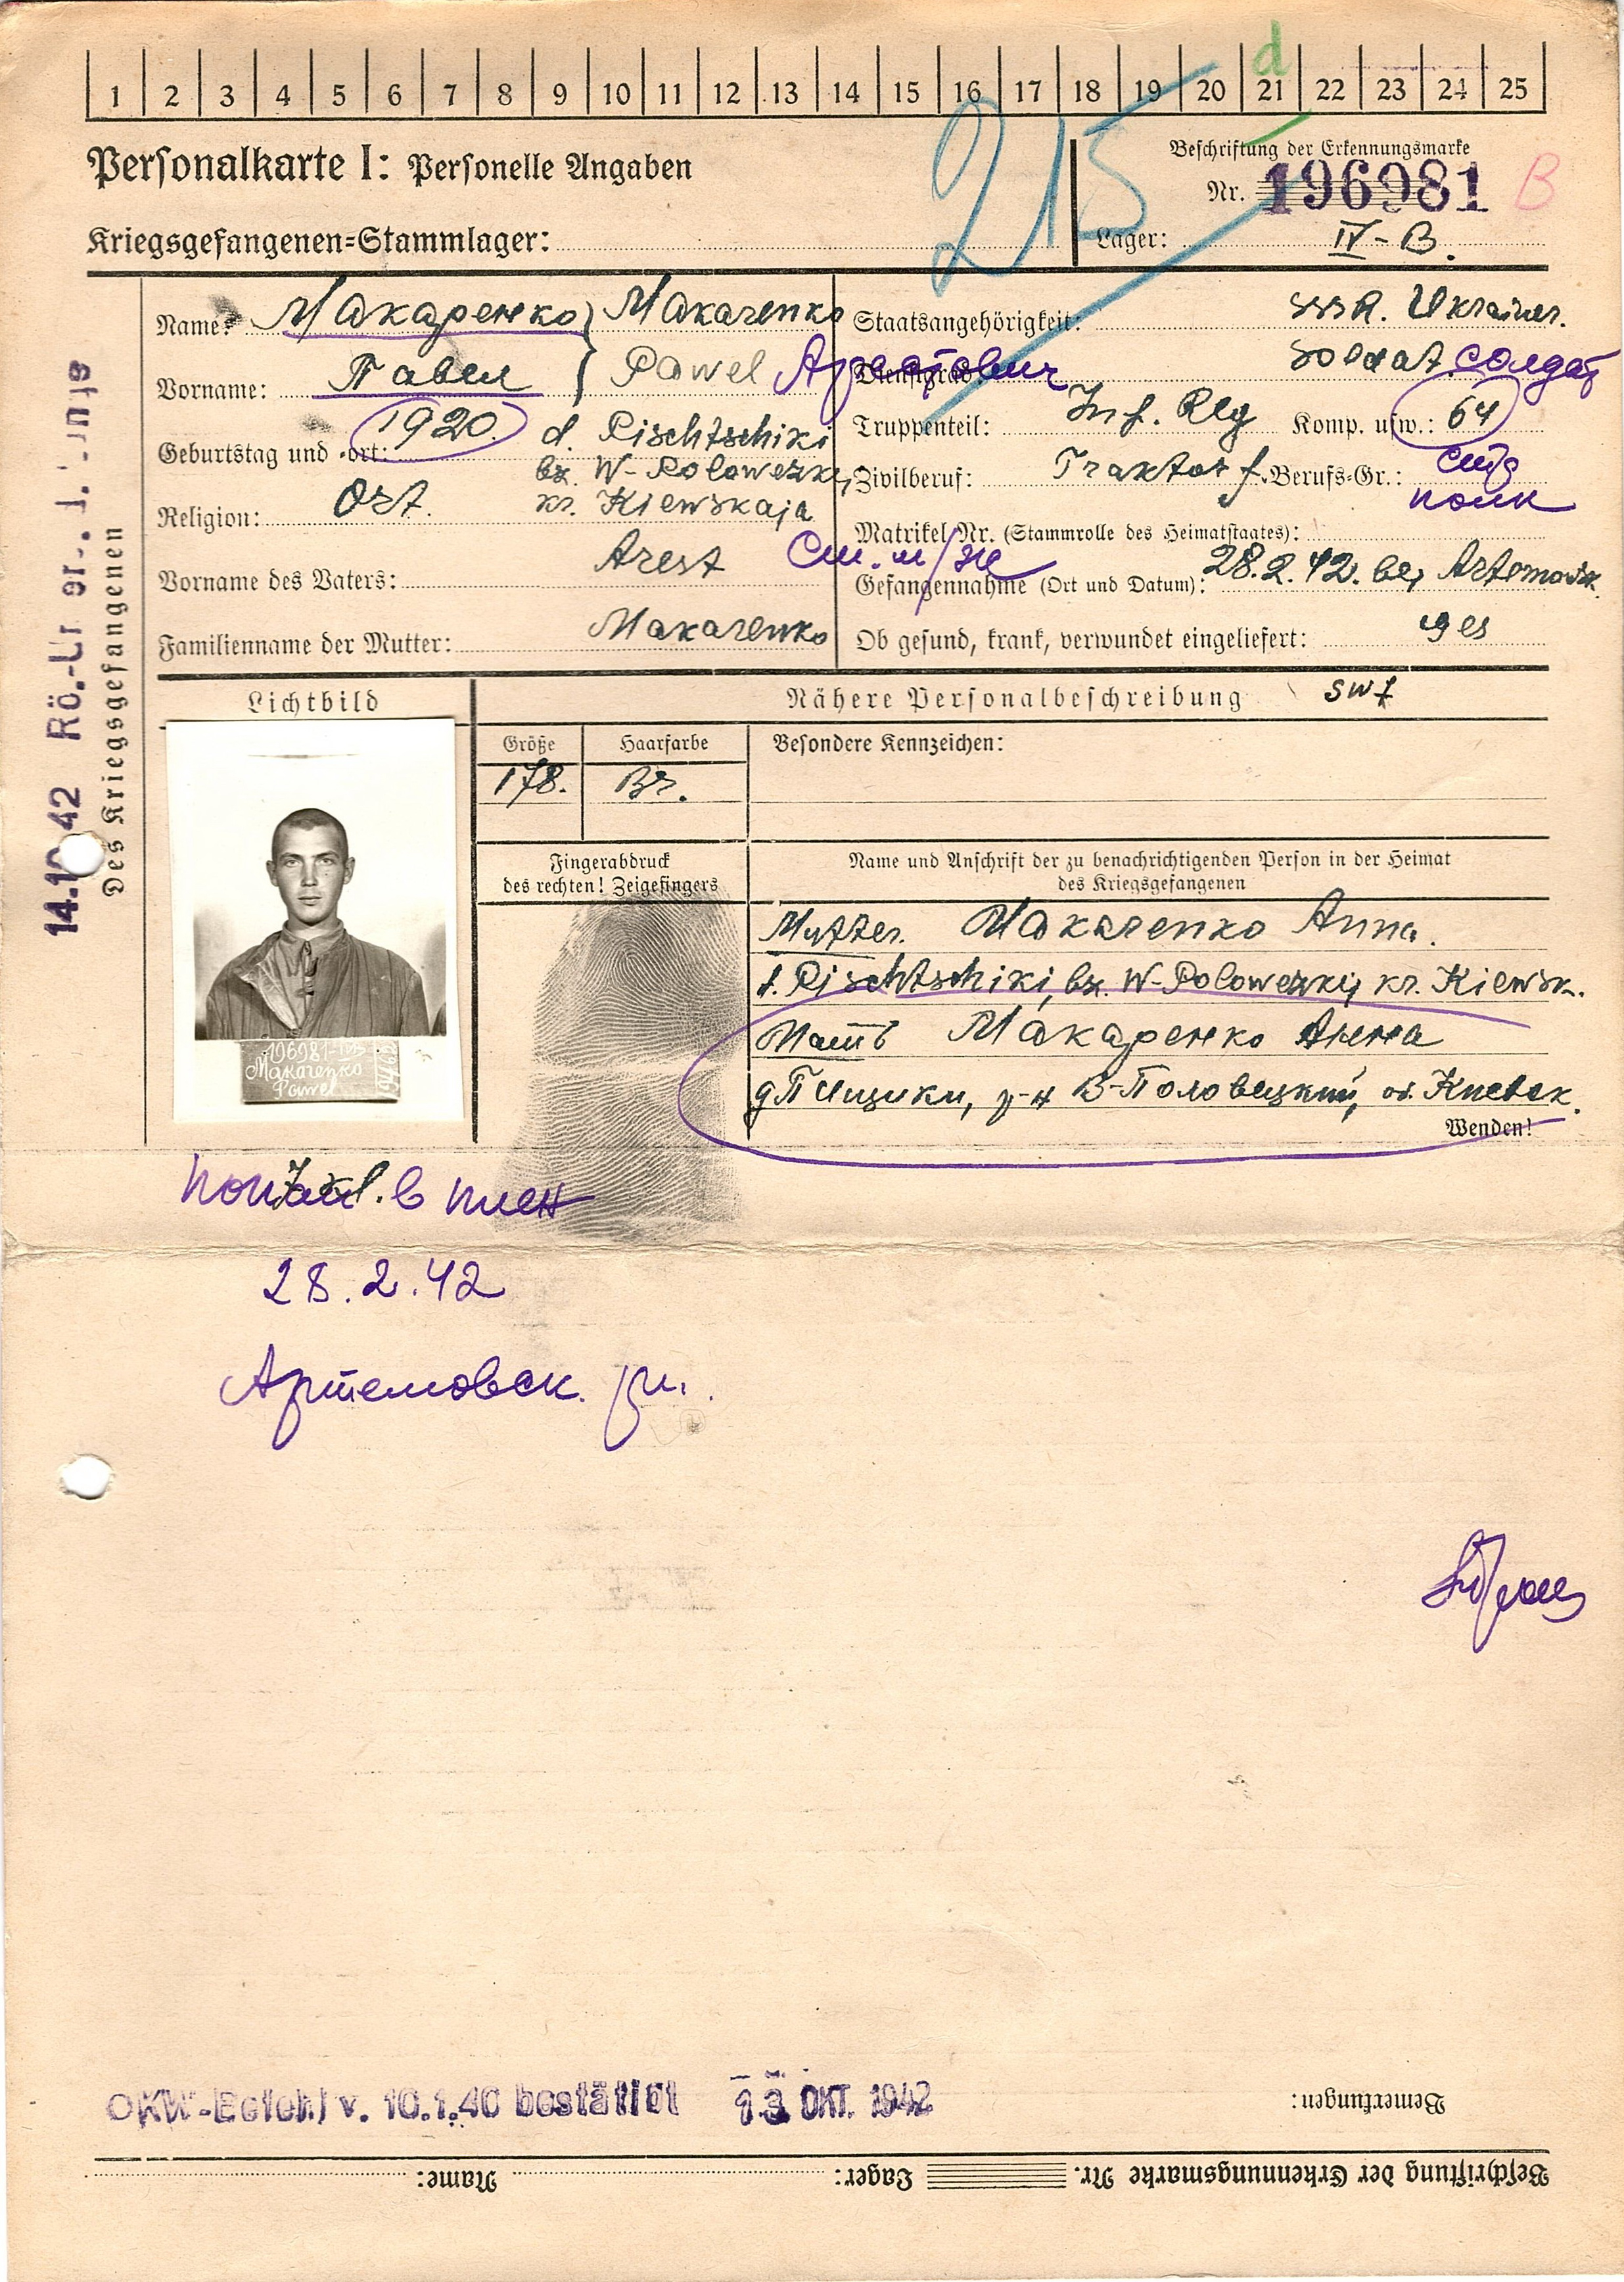 1 2 3 4 5 6 7 8 9 10 11 12 13 14 15 16 17 18 19 20 21 22 23 24 25
d
Personalkarte I: Personelle Angaben
215
Beschriftung der Erkennungsmarke
Nr. 196981 B
Kriegsgefangenen-Stammlager:
Lager: IV-B.
Name: Макаренко } Makarenko
Vorname: Павел } Pawel Арестович
Geburtstag und -ort: 1920. d. Pischtschiki
bz. W-Polowezkij
Religion: Ort. kr. Kiewskaja
Vorname des Vaters: Arest
Familienname der Mutter: Makarenko
Staatsangehörigkeit: SSSR. Ukrainer.
Dienstgrad: Soldat. солдат
Truppenteil: Inf. Reg Komp. usw.: 64
Zivilberuf: Traktor f. Berufs-Gr.: стр
полк
Matrikel Nr. (Stammrolle des Heimatstaates):
См. н/ж
Gefangennahme (Ort und Datum): 28.2.42. bei Artemowsk.
Ob gesund, krank, verwundet eingeliefert: ges
14.10.42 Rö.-
Des Kriegsgefangenen
Lichtbild
Nähere Personalbeschreibung
Größe
Haarfarbe
Besondere Kennzeichen:
178.
Br.
Fingerabdruck
des rechten! Zeigefingers
Name und Anschrift der zu benachrichtigenden Person in der Heimat
des Kriegsgefangenen
Mutter. Makarenko Anna.
d. Pischtschiki, bz. W-Polowezkij kr. Kiewsk.
Мать Макаренко Анна
д Пищики, р-н В-Половецкий, об. Киевск.
Wenden!
196981-IVB
Makarenko
Pawel
попал в плен
28.2.42
Артемовск.
OKW-Befehl v. 10.1.40 bestätigt 13. OKT. 1942
Bemerkungen:
Beschriftung der Erkennungsmarke Nr. Lager: Name: